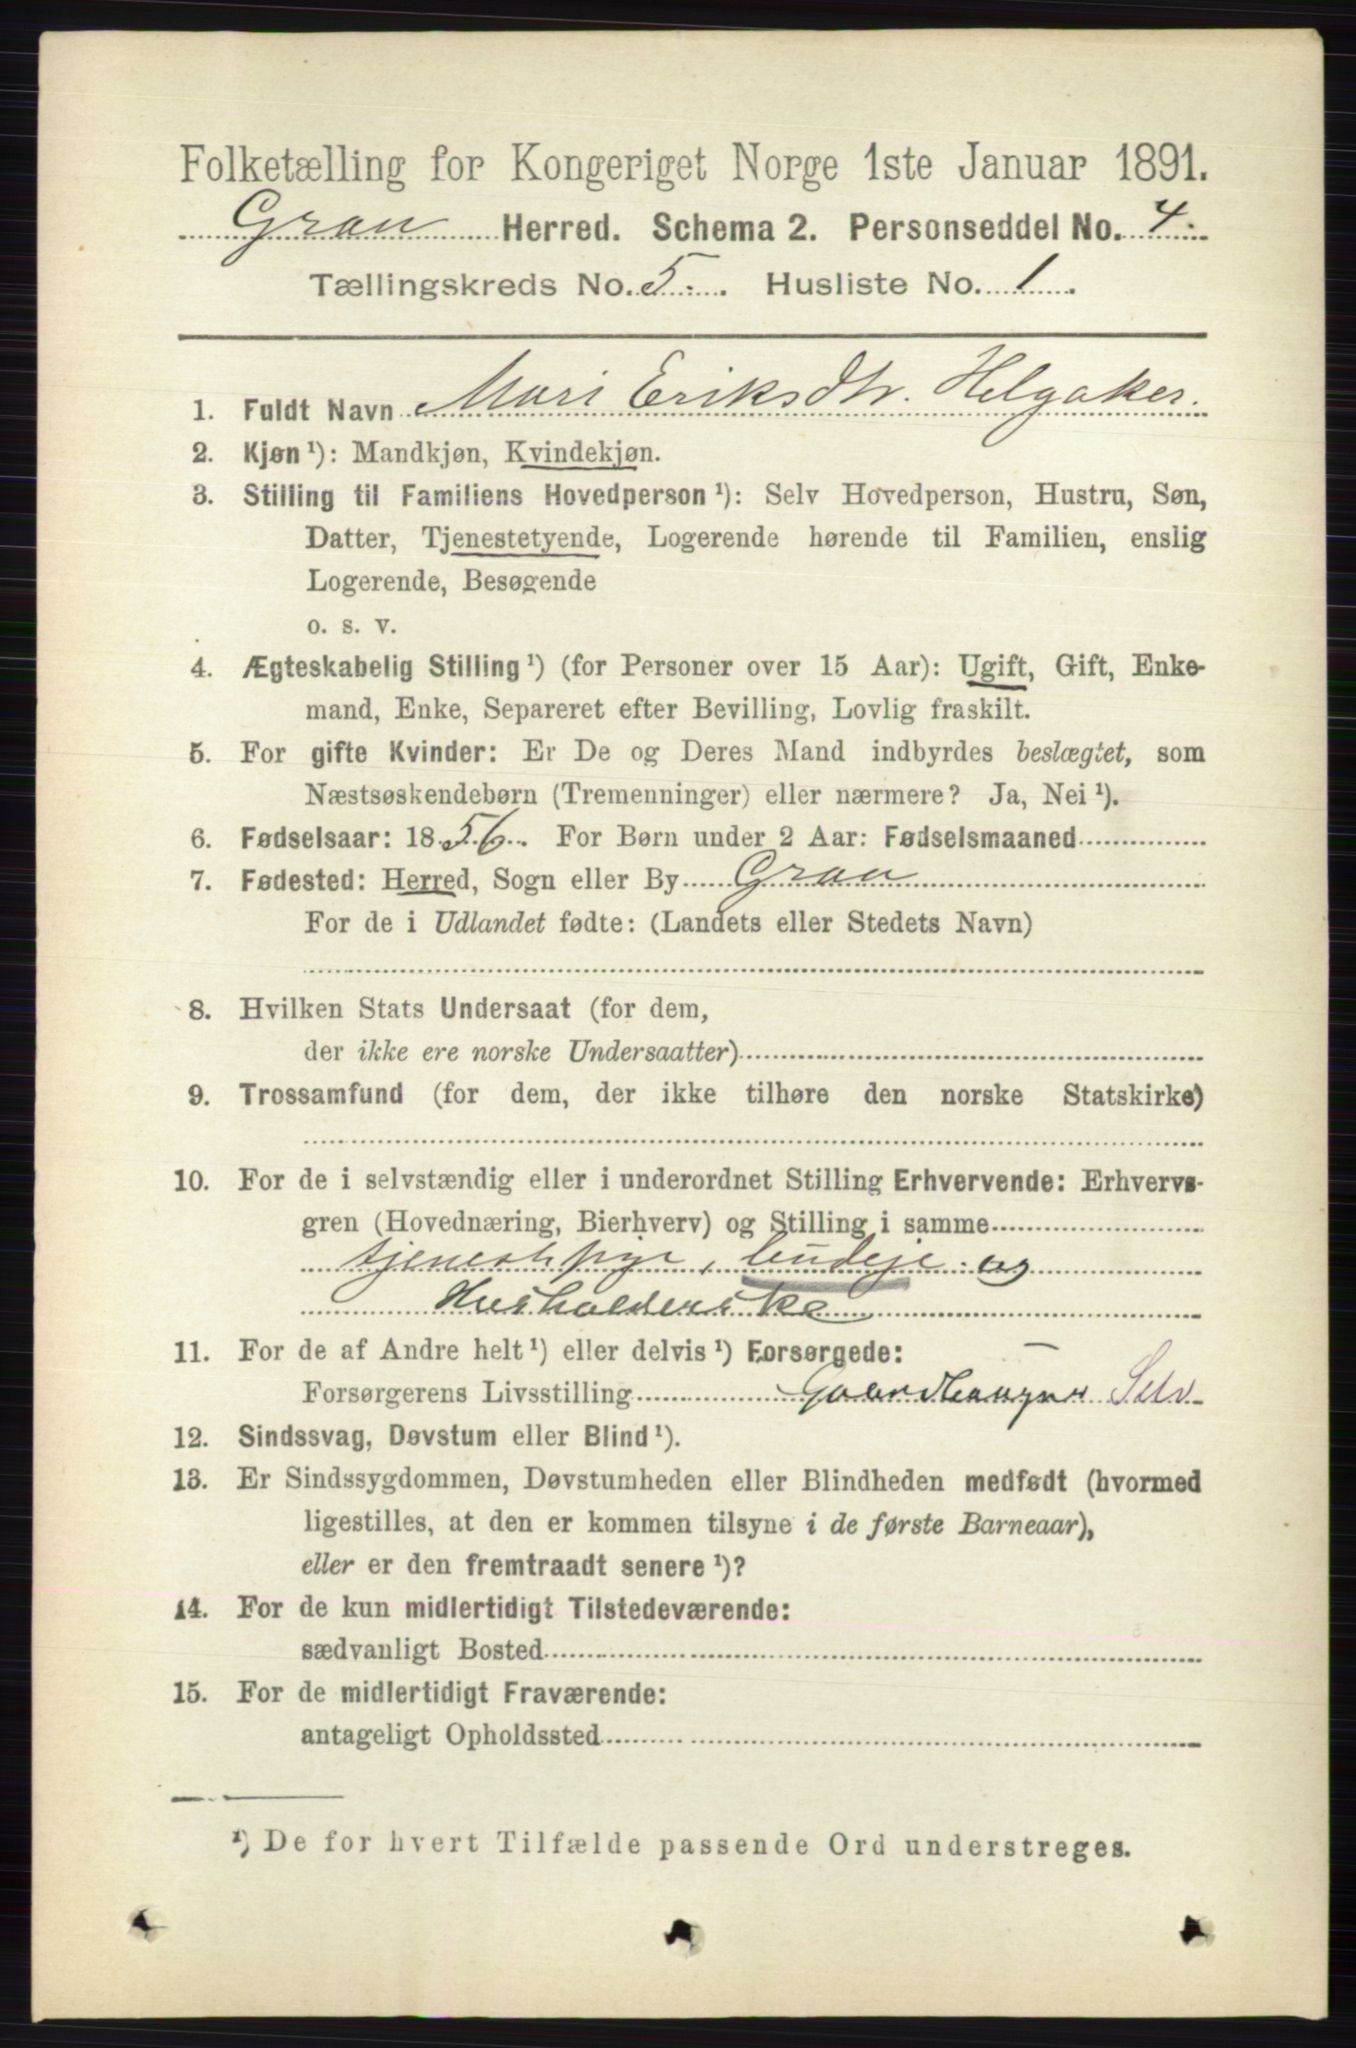 Folketælling for Kongeriget Norge 1ste Januar 1891.
Gran Herred. Schema 2. Personseddel No. 4.
Tællingskreds No. 5. Husliste No. 1.
1. Fuldt Navn Mari Eriksdtr. Helgaker.
2. Kjøn ¹): Mandkjøn, Kvindekjøn.
3. Stilling til Familiens Hovedperson ¹): Selv Hovedperson, Hustru, Søn,
Datter, Tjenestetyende, Logerende hørende til Familien, enslig
Logerende, Besøgende
o. s. v.
4. Ægteskabelig Stilling ¹) (for Personer over 15 Aar): Ugift, Gift, Enke-
mand, Enke, Separeret efter Bevilling, Lovlig fraskilt.
5. For gifte Kvinder: Er De og Deres Mand indbyrdes beslægtet, som
Næstsøskendebørn (Tremenninger) eller nærmere? Ja, Nei ¹).
6. Fødselsaar: 1856. For Børn under 2 Aar: Fødselsmaaned
7. Fødested: Herred, Sogn eller By Gran
For de i Udlandet fødte: (Landets eller Stedets Navn)
8. Hvilken Stats Undersaat (for dem,
der ikke ere norske Undersaatter)
9. Trossamfund (for dem, der ikke tilhøre den norske Statskirke)
10. For de i selvstændig eller i underordnet Stilling Erhvervende: Erhvervs-
gren (Hovednæring, Bierhverv) og Stilling i samme
budeje og
Husholderske
11. For de af Andre helt ¹) eller delvis ¹) Forsørgede: —
Forsørgerens Livsstilling Selv
12. Sindssvag, Døvstum eller Blind ¹).
13. Er Sindssygdommen, Døvstumheden eller Blindheden medfødt (hvormed
ligestilles, at den er kommen tilsyne i de første Barneaar),
eller er den fremtraadt senere ¹)?
14. For de kun midlertidigt Tilstedeværende:
sædvanligt Bosted
15. For de midlertidigt Fraværende:
antageligt Opholdssted
¹) De for hvert Tilfælde passende Ord understreges.